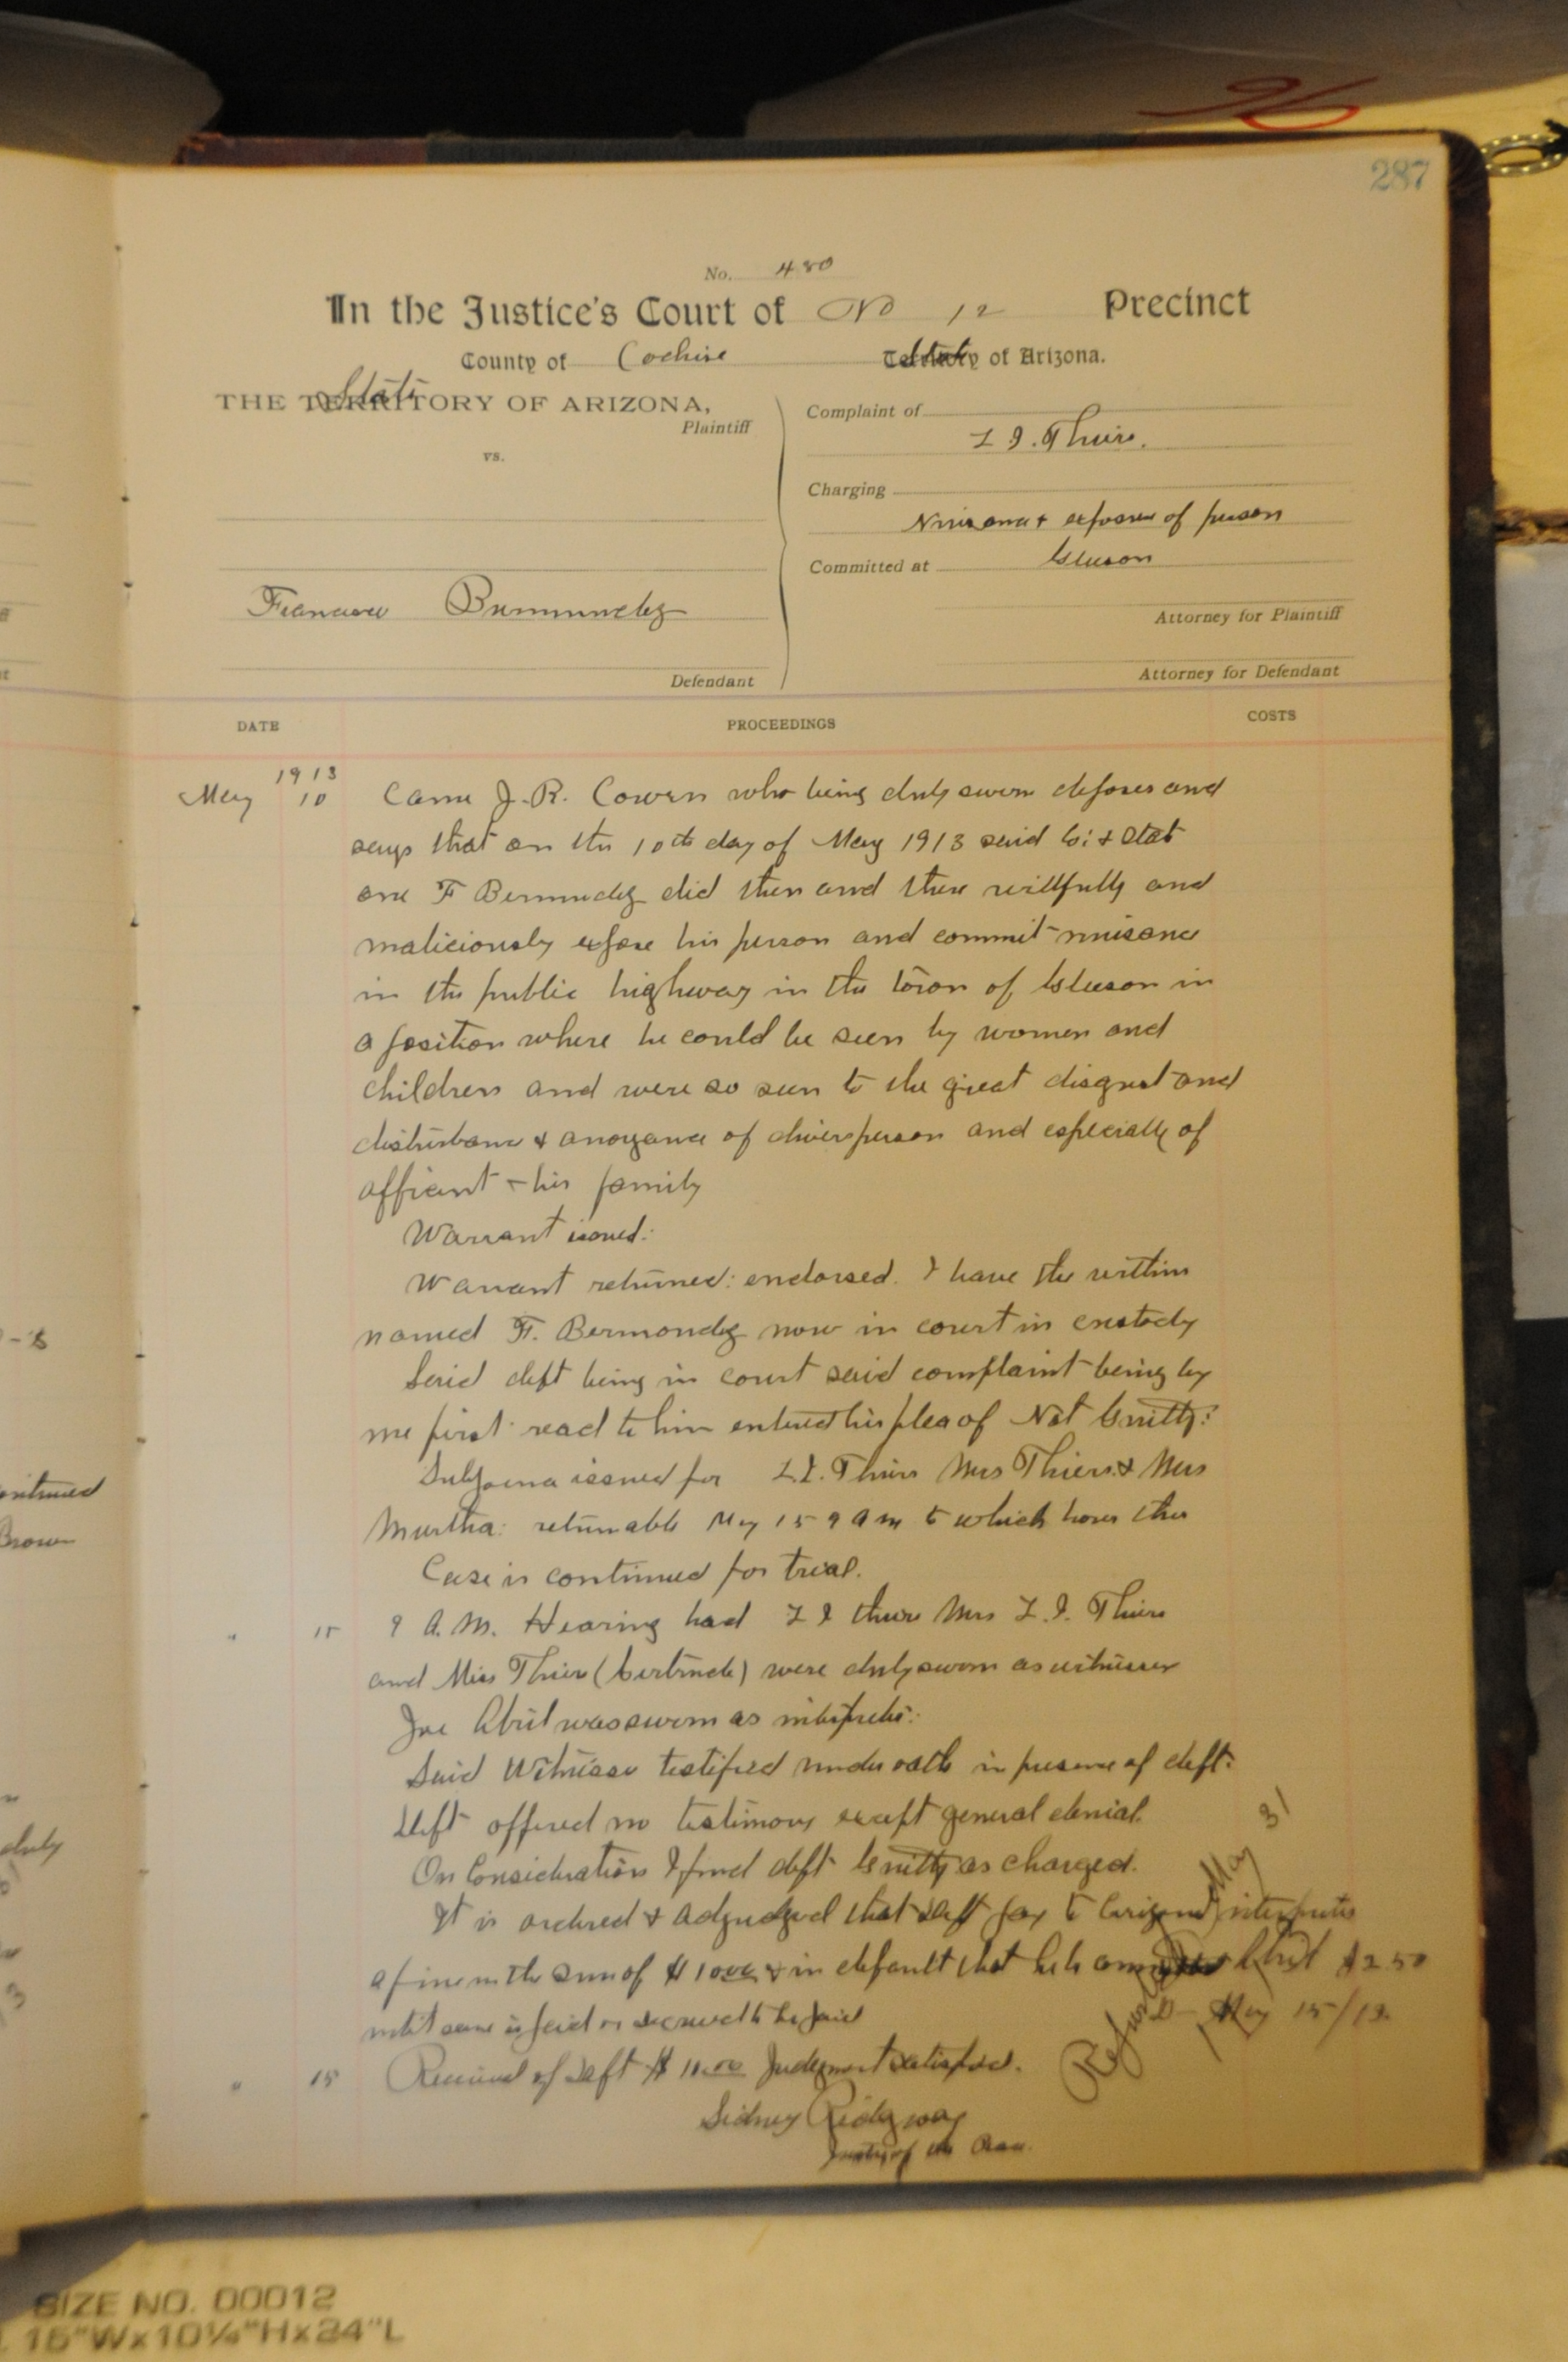 96
287
No. 480
In the Justice's Court of No 12 Precinct
County of Cochise State of Arizona.
State
THE TERRITORY OF ARIZONA,
Plaintiff
vs.
Francisco Bermudez
Defendant
Complaint of
L I. Thiers.
Charging
Nuisance & exposure of person
Committed at Gleeson
Attorney for Plaintiff
Attorney for Defendant
DATE PROCEEDINGS COSTS
1913
May 10 Came J. R. Cowen who being duly sworn deposes and
says that on the 10th day of May 1913 said Co: & State
one F Bermudez did then and there willfully and
maliciously expose his person and commit nuisance
in the public highway in the town of Gleeson in
a position where he could be seen by women and
children and were so seen to the great disgust and
disturbance & anoyance of divers person and especially of
affiant & his family
Warrant issued:
Warrant returned: endorsed. I have the within
named F. Bermondez now in court in custody
Said deft being in court said complaint being by
me first read to him entered his plea of Not Guilty:
Subpoena issued for L.I. Thiers Mrs Thiers & Mrs
Murtha: returnable May 15 9 am to which hour this
Case is continued for trial.
" 15 9 A.M. Hearing had L I Thiers Mrs L. I. Thiers
and Miss Thiers (Gertrude) were duly sworn as witnesses
Joe Abril was sworn as interpreter:
Said Witnesses testified under oath in presence of deft:
Deft offered no testimony except general denial.
On Consideration I find deft Guilty as charged.
It is ordered & adjudged that deft pay to Arizona interpreter
a fine in the sum of $10.00 & in default that he be Abril $2.50
until same is paid or secured to be paid
May 15/13.
" 15 Received of deft $10.00 Judgment satisfied.
Reported May 31
Sidney Ridgway
Justice of the Peace.
ontinued
Brown
duly
SIZE NO. 00012
15"Wx10¼"Hx24"L